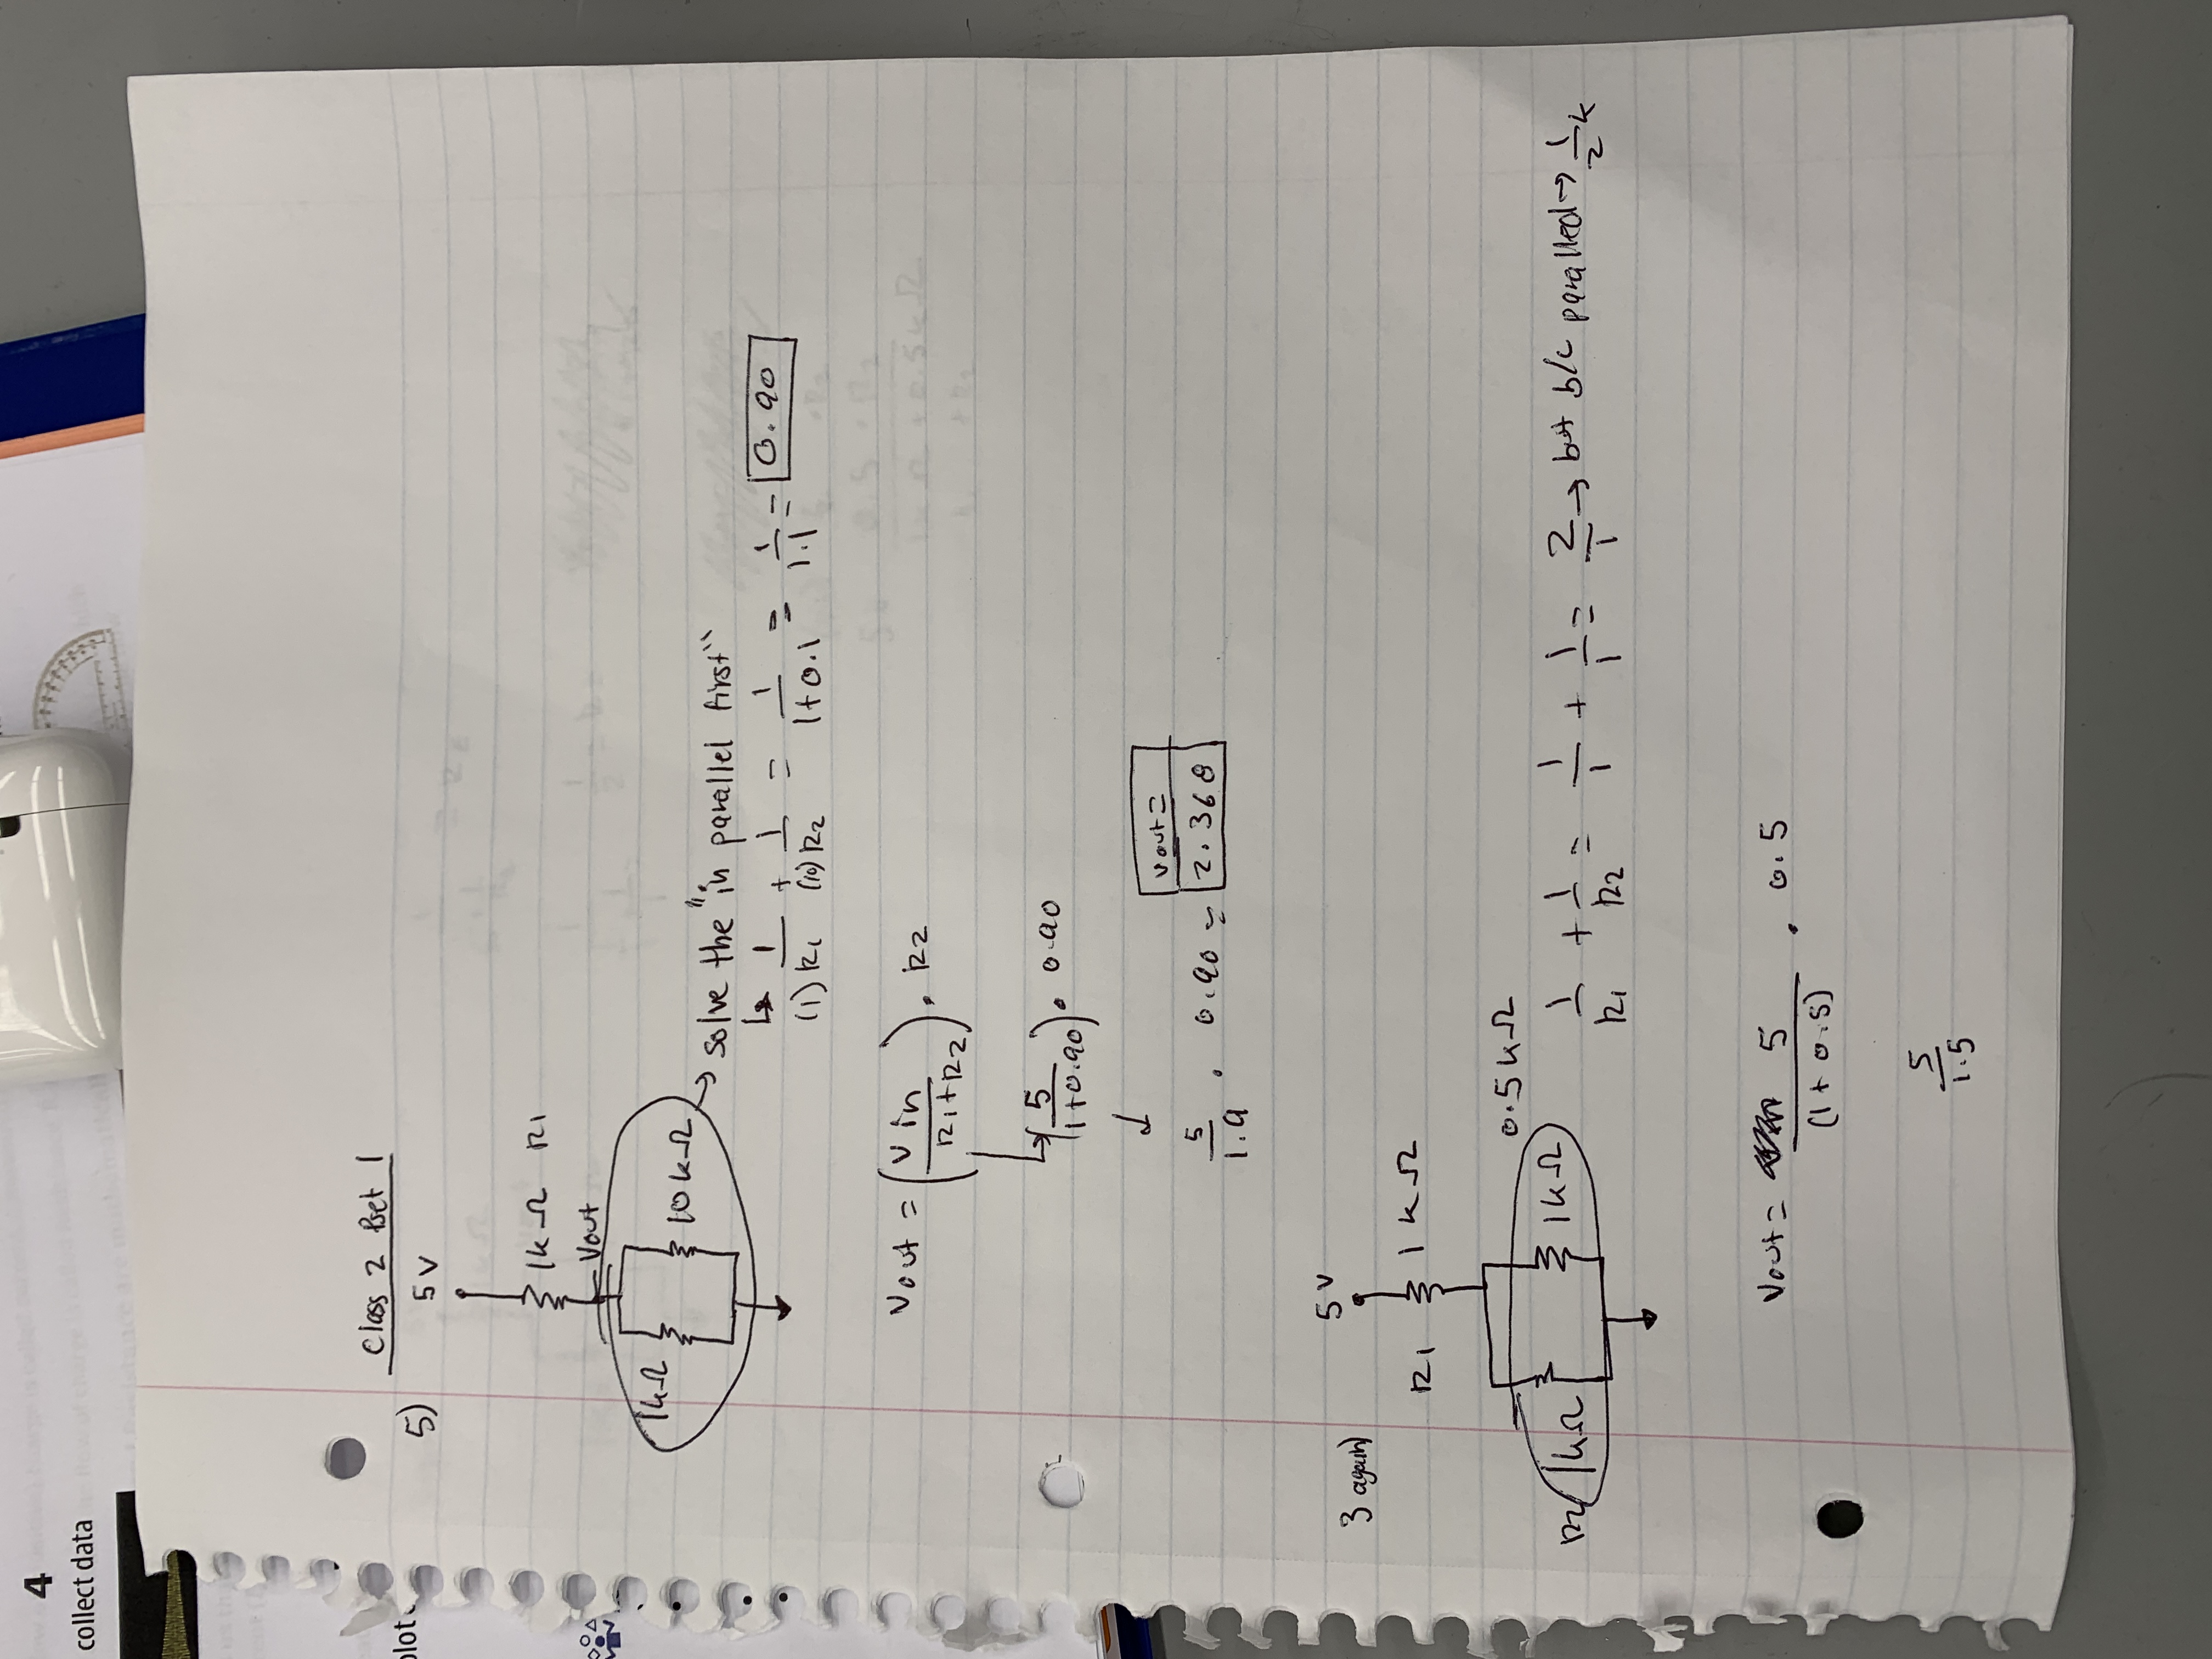 4
collect data
Class 2 Pset 1
5)
5 V
1k Ω R1
Vout
1kΩ
10 k Ω
→ solve the "in parallel first"
↳ 1/(1) R1 + 1/(10) R2 = 1/1+0.1 = 1/1.1 = 0.90
Vout = (V in/R1+R2) . R2
(5/1+0.90) . 0.90
↓
5/1.9 . 0.90 = Vout = 2.368
3 again)
5 V
R1 1 k Ω
0.5 k Ω
R2 1kΩ 1k Ω
1/R1 + 1/R2 = 1/1 + 1/1 = 2/1 → but b/c paralled → 1/2 k
Vout = 5/(1 + 0.5) . 0.5
5/1.5